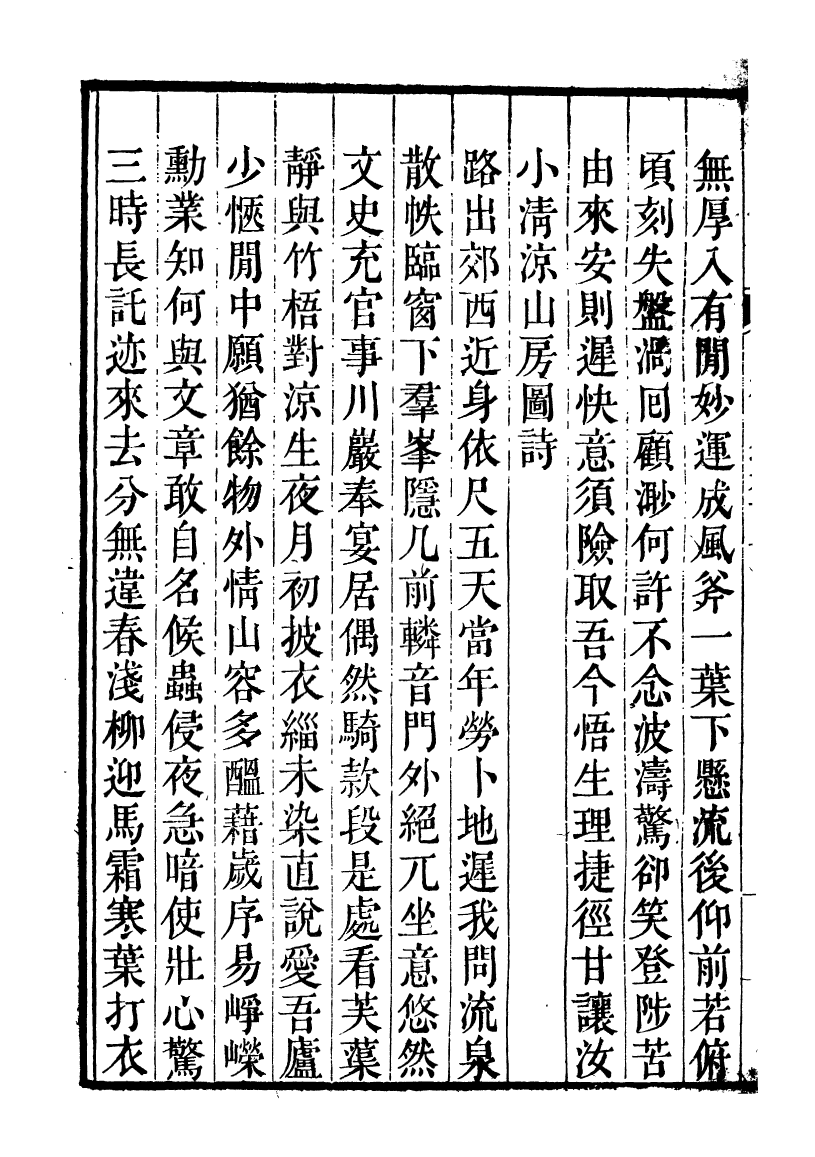 無厚入有閒妙運成風斧一葉下懸流後仰前若俯
頃刻失盤渦囘顧渺何許不念波濤驚卻笑登陟苦
由來安則遲快意須險取吾今悟生理捷徑甘讓汝
小清涼山房圖詩
路出郊西近身依尺五天當年勞卜地遲我問流泉
散帙臨窗下羣峯隱几前轔音門外絕兀坐意悠然
文史充官事川巖奉宴居偶然騎款段是處看芙蕖
靜與竹梧對涼生夜月初披衣緇未染直說愛吾廬
少愜閒中願猶餘物外情山容多醞藉歲序易崢嶸
勳業知何與文章敢自名候蟲侵夜急暗使壯心驚
三時長託迹來去分無違春淺柳迎馬霜寒葉打衣